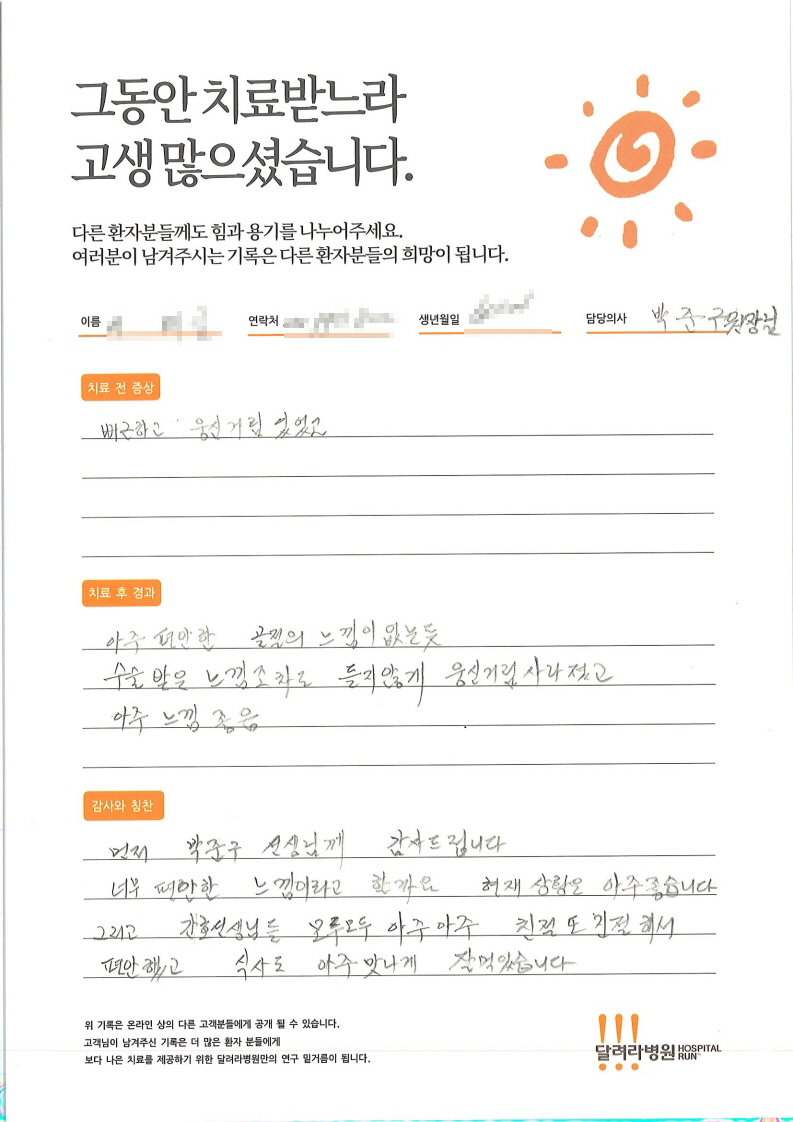 그동안 치료받느라
고생 많으셨습니다.
다른 환자분들께도 힘과 용기를 나누어주세요.
여러분이 남겨주시는 기록은 다른 환자분들의 희망이 됩니다.
이름 연락처 생년월일 담당의사 박준구원장님
치료 전 증상
뻐근하고 웅신거림 있었고
치료 후 경과
아주 편안한 골절의 느낌이 없는듯
수술 받은 느낌조차도 들지않게 웅신거림 사라졌고
아주 느낌 좋음
감사와 칭찬
먼저 박준구 선생님께 감사드립니다
너무 편안한 느낌이라고 할까요 현재 상황은 아주좋습니다
그리고 간호선생님들 모두모두 아주아주 친절 또 친절해서
편안했고 식사도 아주 맛나게 잘먹었습니다
위 기록은 온라인 상의 다른 고객분들에게 공개 될 수 있습니다.
고객님이 남겨주신 기록은 더 많은 환자 분들에게
보다 나은 치료를 제공하기 위한 달려라병원만의 연구 밑거름이 됩니다.
달려라병원 HOSPITAL RUN